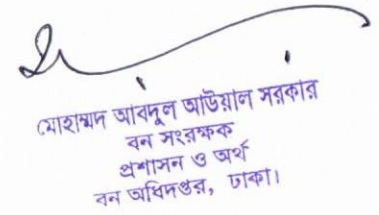 মোহাম্মদ আবদুল আউয়াল সরকার
বন সংরক্ষক
প্রশাসন ও অর্থ
বন অধিদপ্তর, ঢাকা।